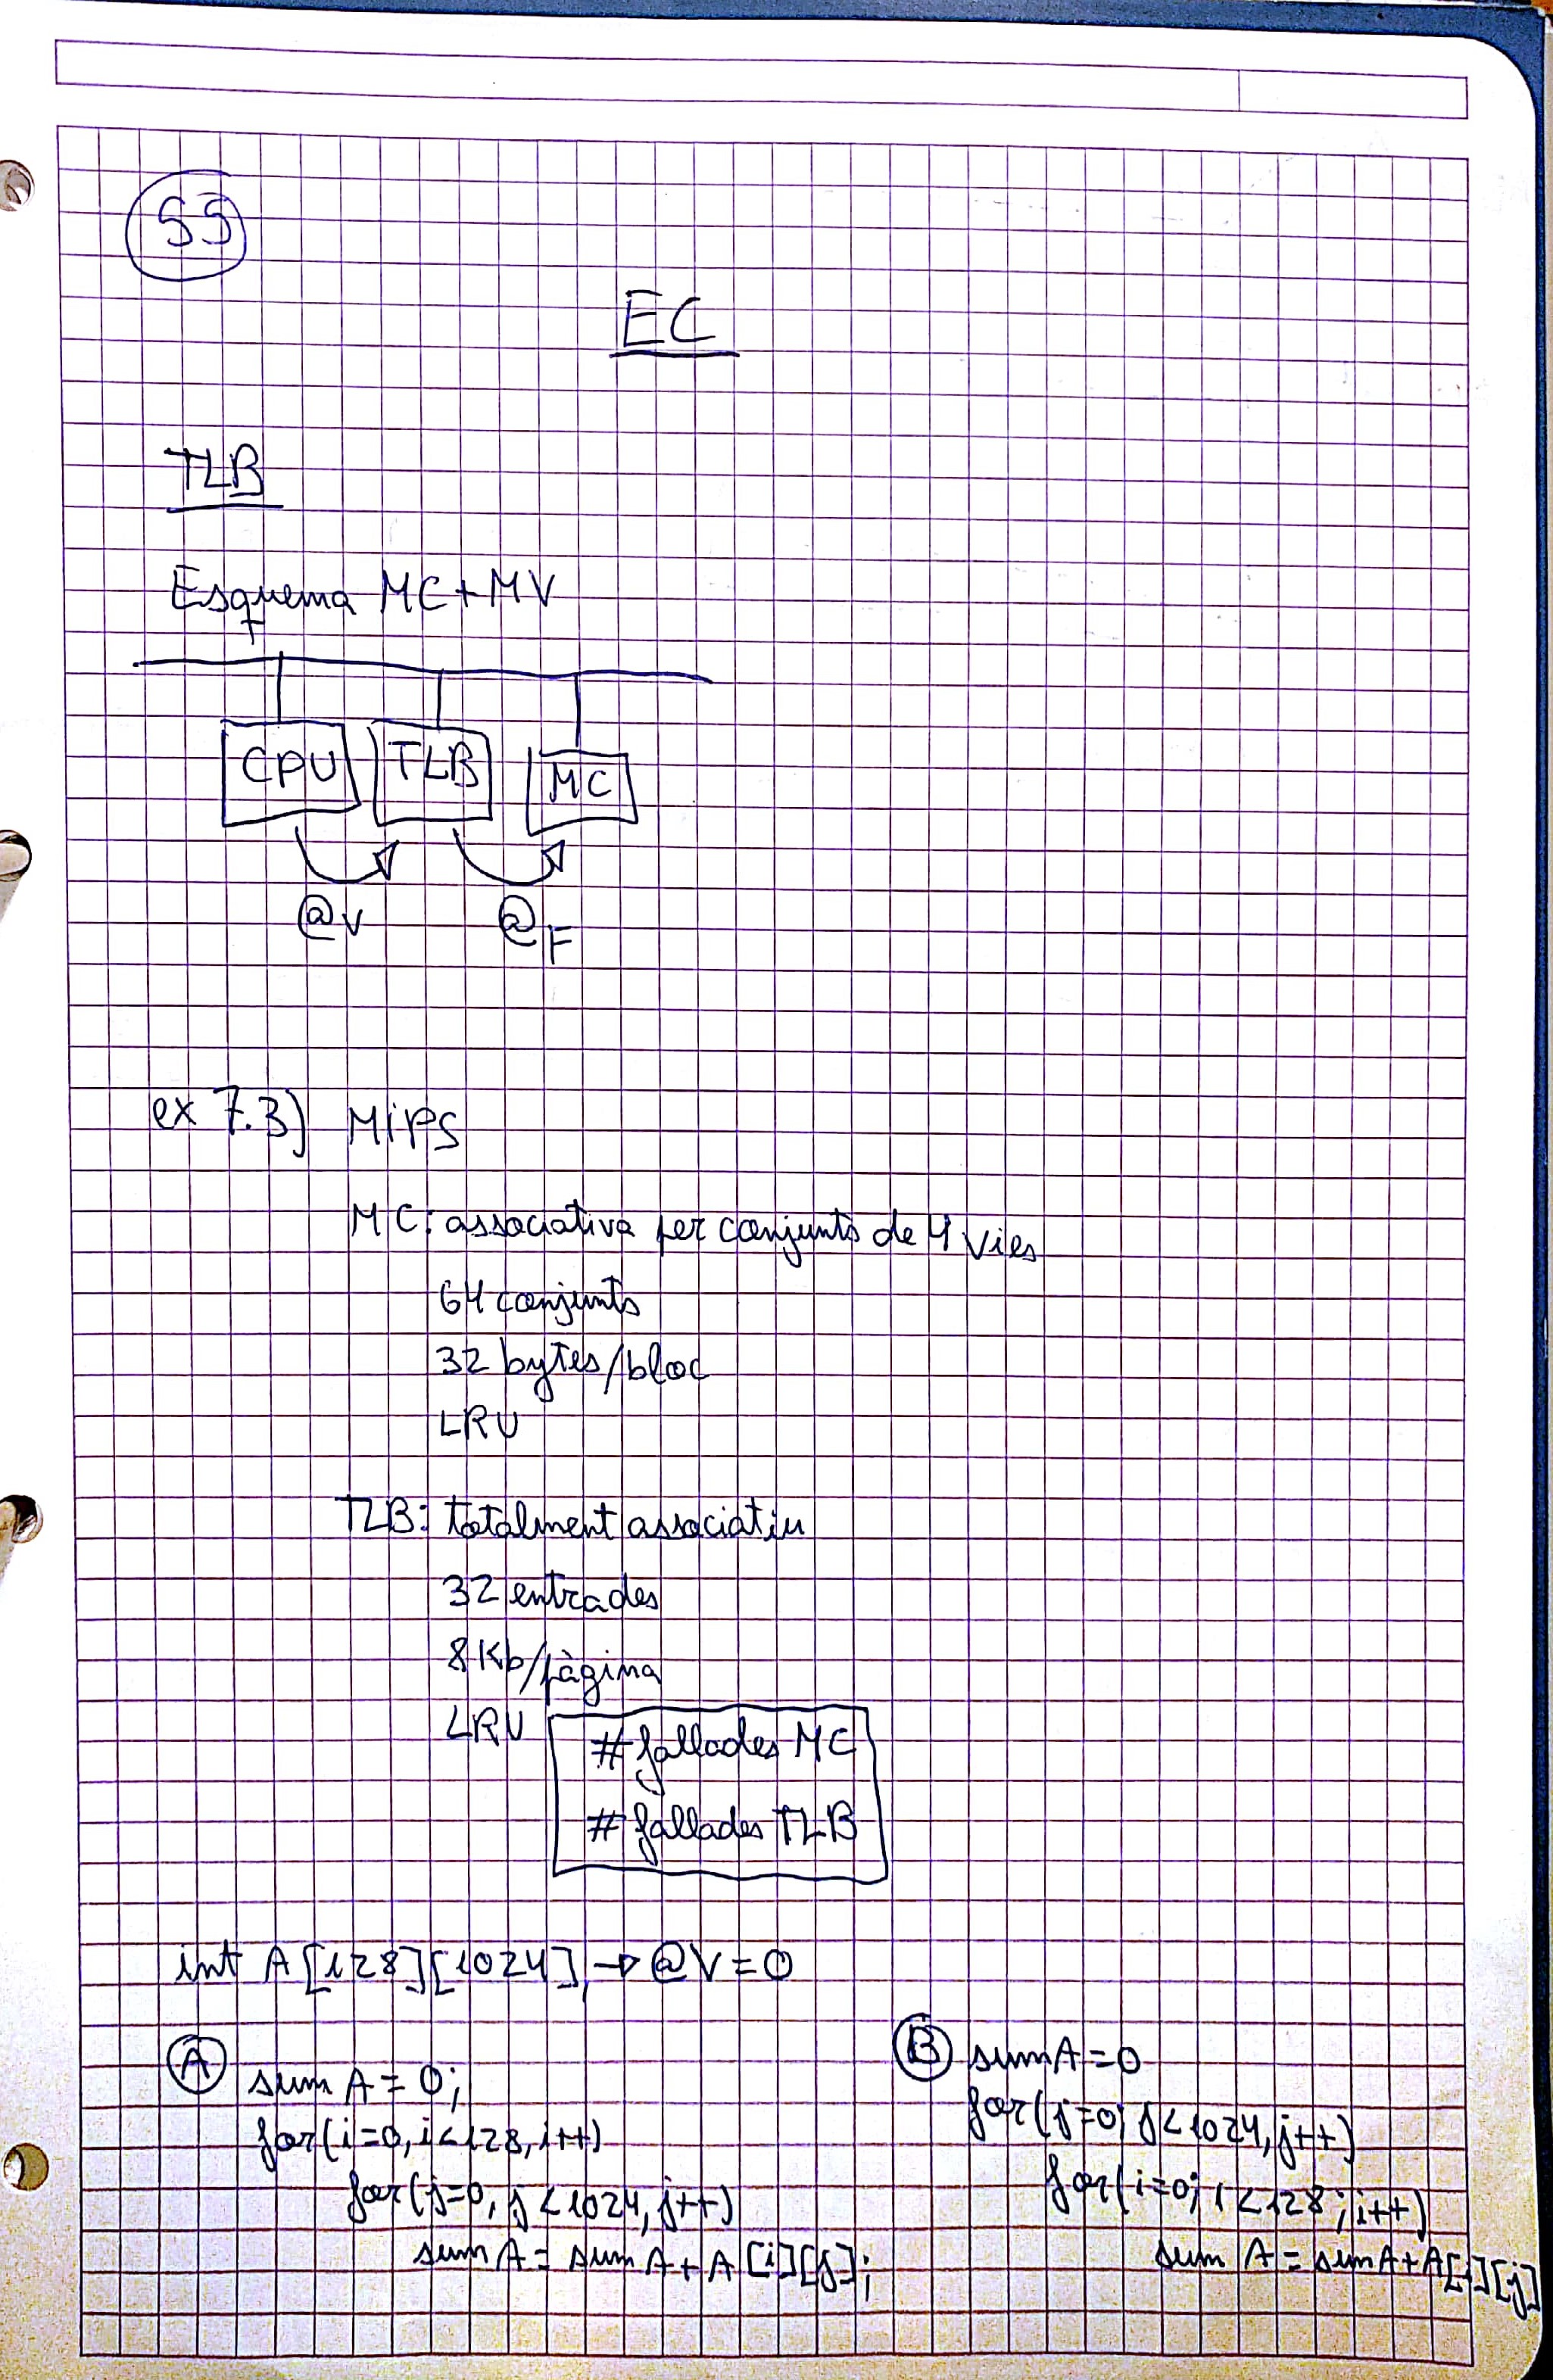 55
EC
TLB
Esquema MC+MV
CPU TLB MC
@V @F
ex 7.3) MIPS
MC: associativa per conjunts de 4 vies
64 conjunts
32 bytes/bloc
LRU
TLB: totalment associatiu
32 entrades
8Kb/pàgina
LRU
# fallades MC
# fallades TLB
int A[128][1024] → @V=0
A
sum A = 0;
for(i=0, i<128, i++)
for(j=0, j<1024, j++)
sum A = sum A + A[i][j];
B
sum A = 0
for(j=0; j<1024, j++)
for(i=0; i<128; i++)
sum A = sum A + A[i][j]